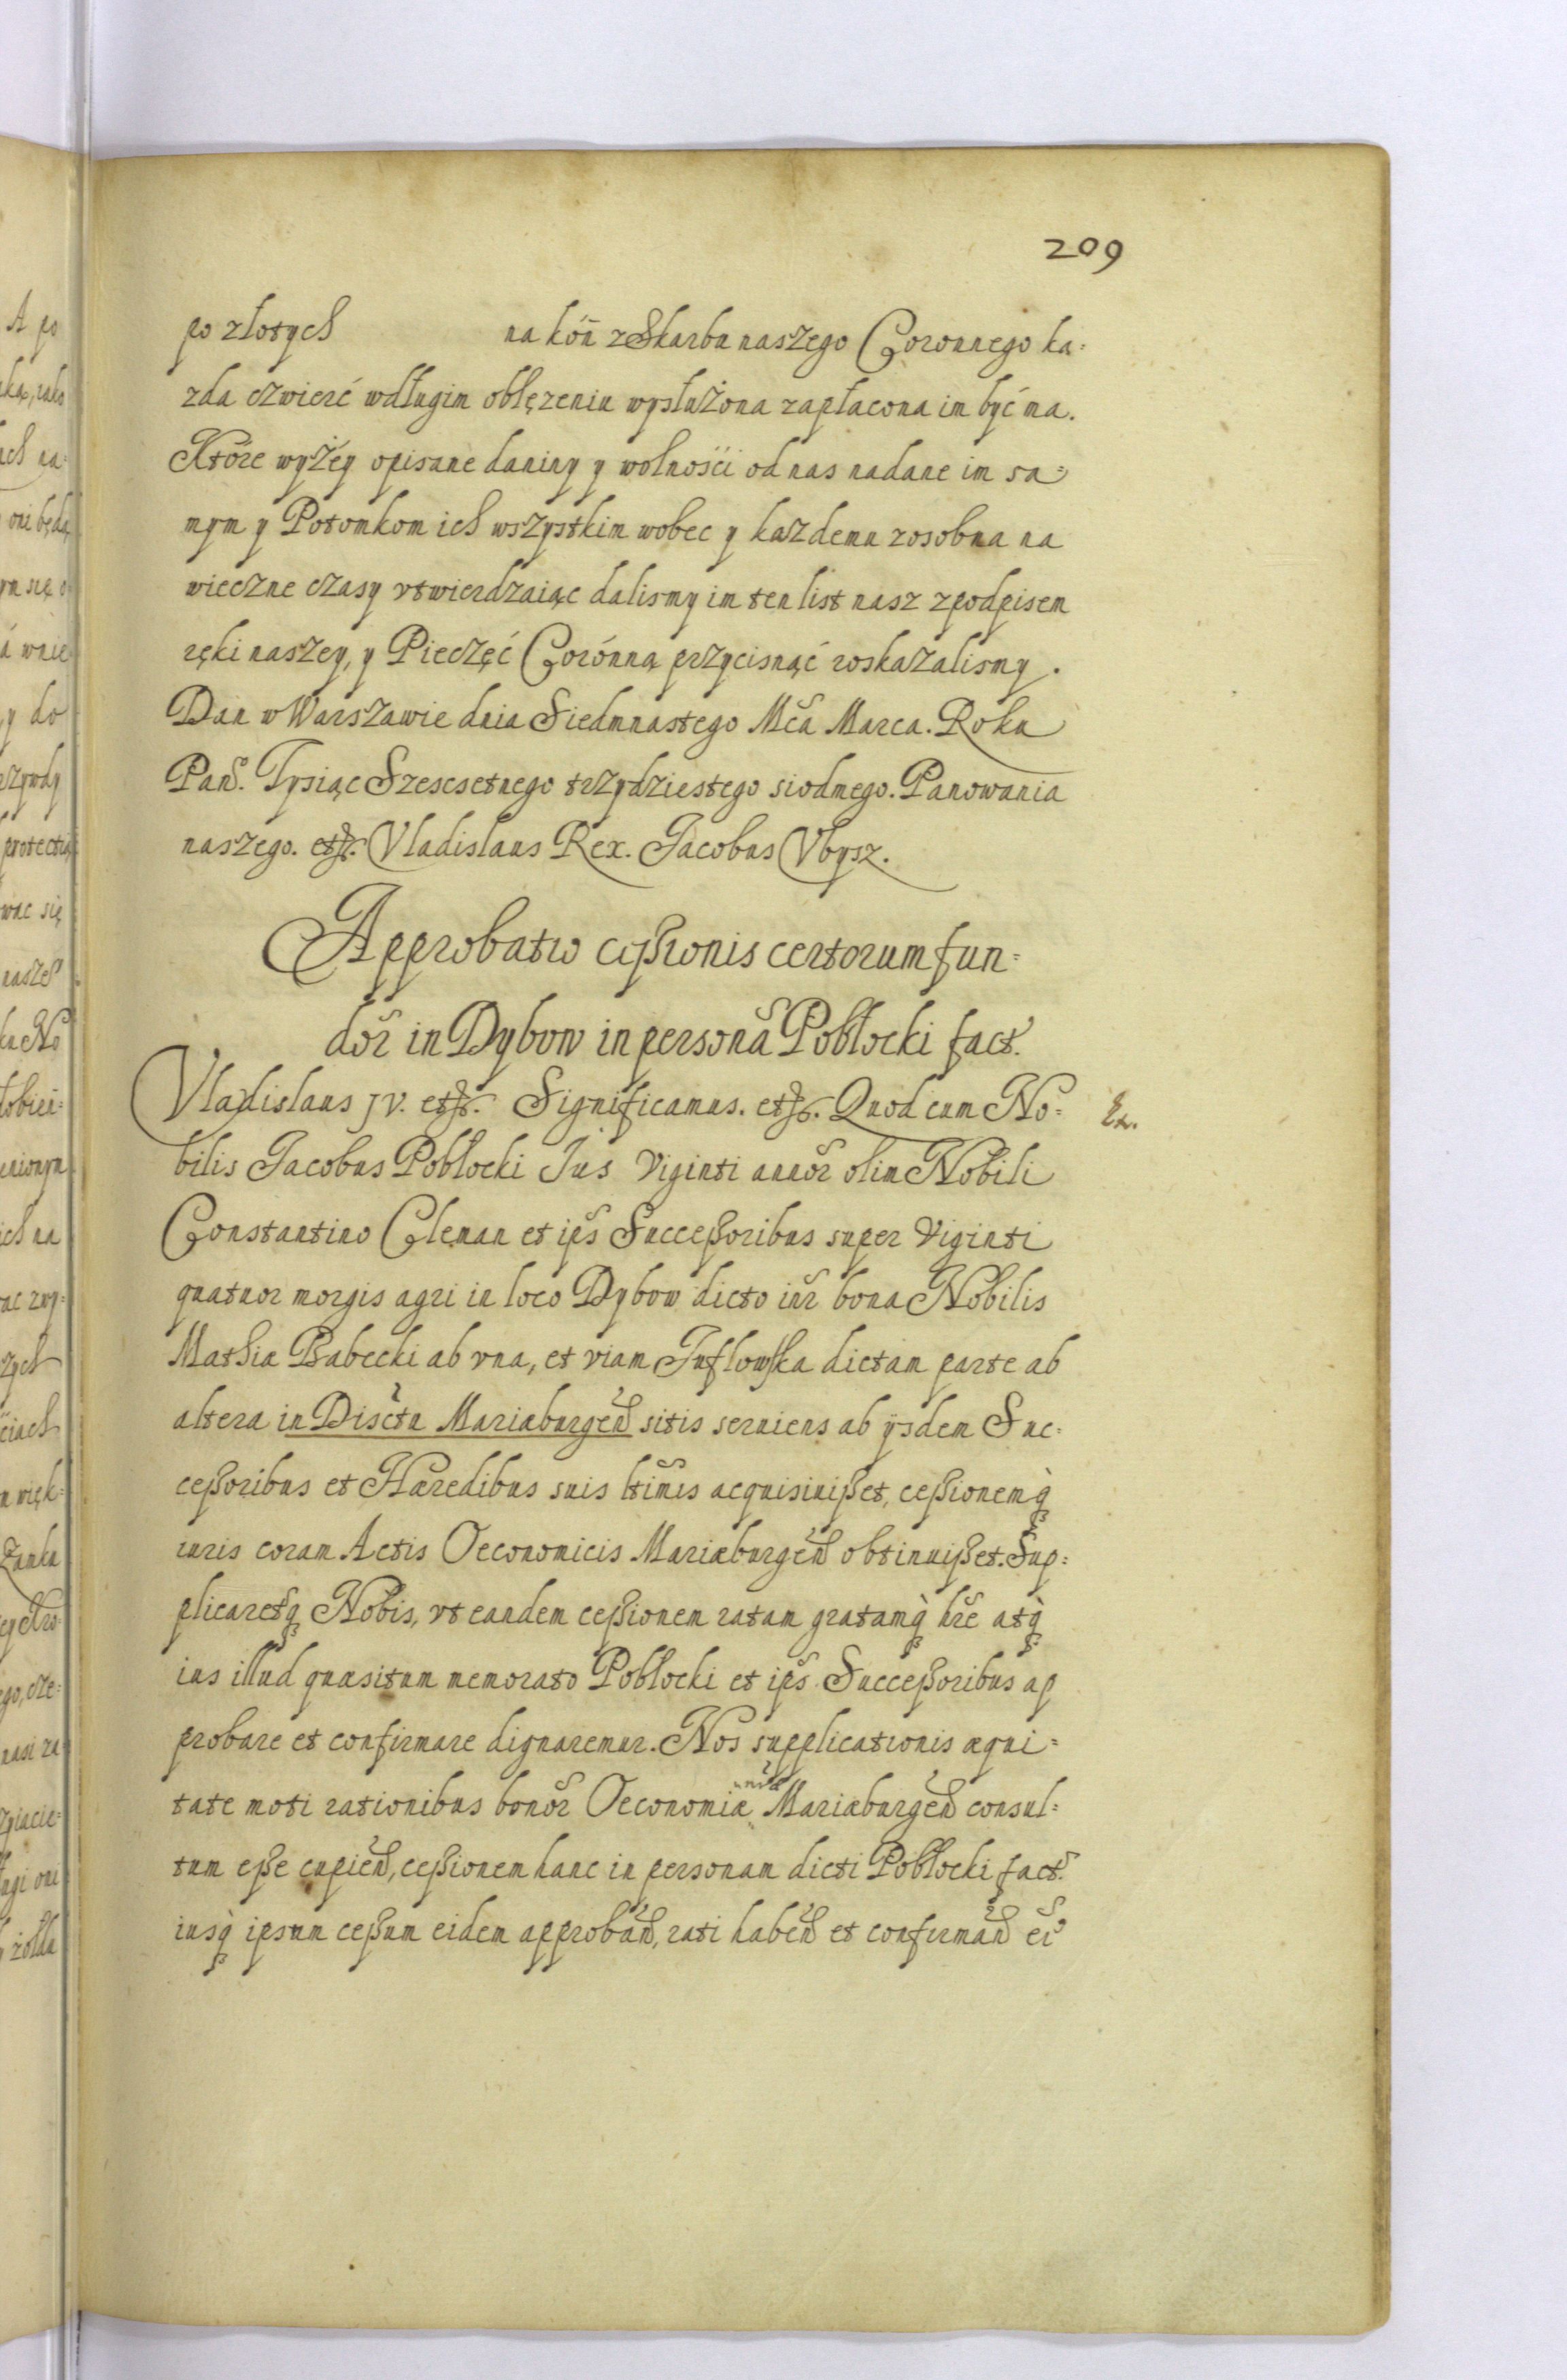 209
po złotych na kóń z Skarbu naszego Coronnego ka=
zda czwierć wdługim oblęzeniu wysłużona zapłacona im być ma.
Które wyżéy opisane daniny y wolnośći od nas nadane im sa=
mym y Potomkom ich wszystkim wobec y kazdemu zosobna na
wieczne czasy vtwierdzaiąc dalismy im ten list nasz zpodpisem
ręki naszey, y Pieczęć Corónną przycisnąć roskazalismy.
Dan w Warszawie dnia Siedmnastego Mca Marca. Roku
Pans. Tysiąc Szescsetnego trzydziestego siodmego. Panowania
naszego. etc. Vladislaus Rex. Jacobus Vbysz.
Approbatio cessionis certorum fun=
dor in Dybow in persona Pobłocki fact.
Vladislaus JV. etc. Significamus. etc. Quod cum No=
bilis Jacobus Pobłocki Jus viginti annor olim Nobili
Constantino Cleman et ips Successoribus super viginti
quatuor morgis agri in loco Dybow dicto inr bona Nobilis
Mathiæ Babecki ab vna, et viam Juflowska dictam parte ab
altera in Disctu Mariæburgen sitis seruiens ab ijsdem Suc=
cessoribus et Hæredibus suis ltimis acquisiuisset, cessionemq
iuris coram Actis Oeconomicis Mariæburgen obtinuisset. Sup=
plicaretq Nobis, vt eandem cessionem ratam gratamq hre atq
ius illud quæsitum memorato Pobłocki et ips Successoribus ap
probare et confirmare dignaremur. Nos supplicationis æqui=
tate moti rationibus bonor Oeconomiæ Mariæburgen consul=
tum esse cupien, cessionem hanc in personam dicti Pobłocki fact.
iusq ipsum cessum eidem approban, rati haben et confirman ei